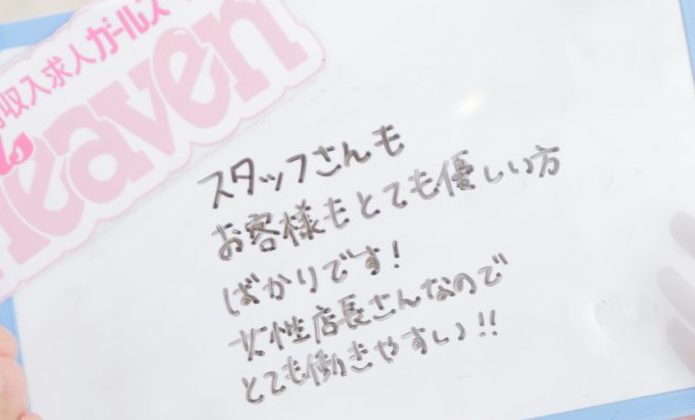 収入求人ガールズ
Heaven
スタッフさんも
お客様もとても優しい方
ばかりです!
女性店長さんなので
とても働きやすい!!